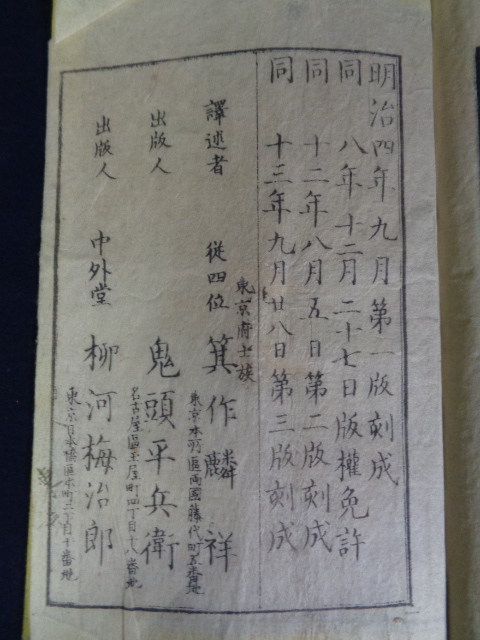 明治四年九月第一版刻成
同 八年十二月二十七日版權免許
同 十二年八月五日第二版刻成
同 十三年九月廿八日第三版刻成
東京府士族
譯述者 從四位 箕作麟祥
東京本所區兩國藤代町五番地
出版人 鬼頭平兵衛
名古屋區玉屋町四丁目十八番地
出版人 中外堂 柳河梅治郎
東京日本橋區本町二丁目十番地